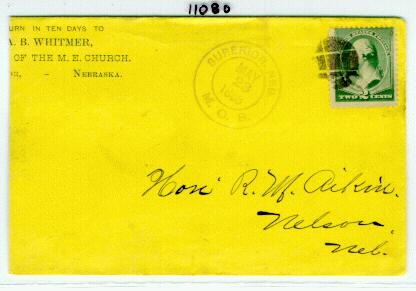 11080
URN IN TEN DAYS TO
A. B. WHITMER,
OF THE M. E. CHURCH.
NEBRASKA.
SUPERIOR, NEB.
MAY
23
M. O. B.
TWO 2 CENTS
Hon R. M. Aikin.
Nelson
Neb.